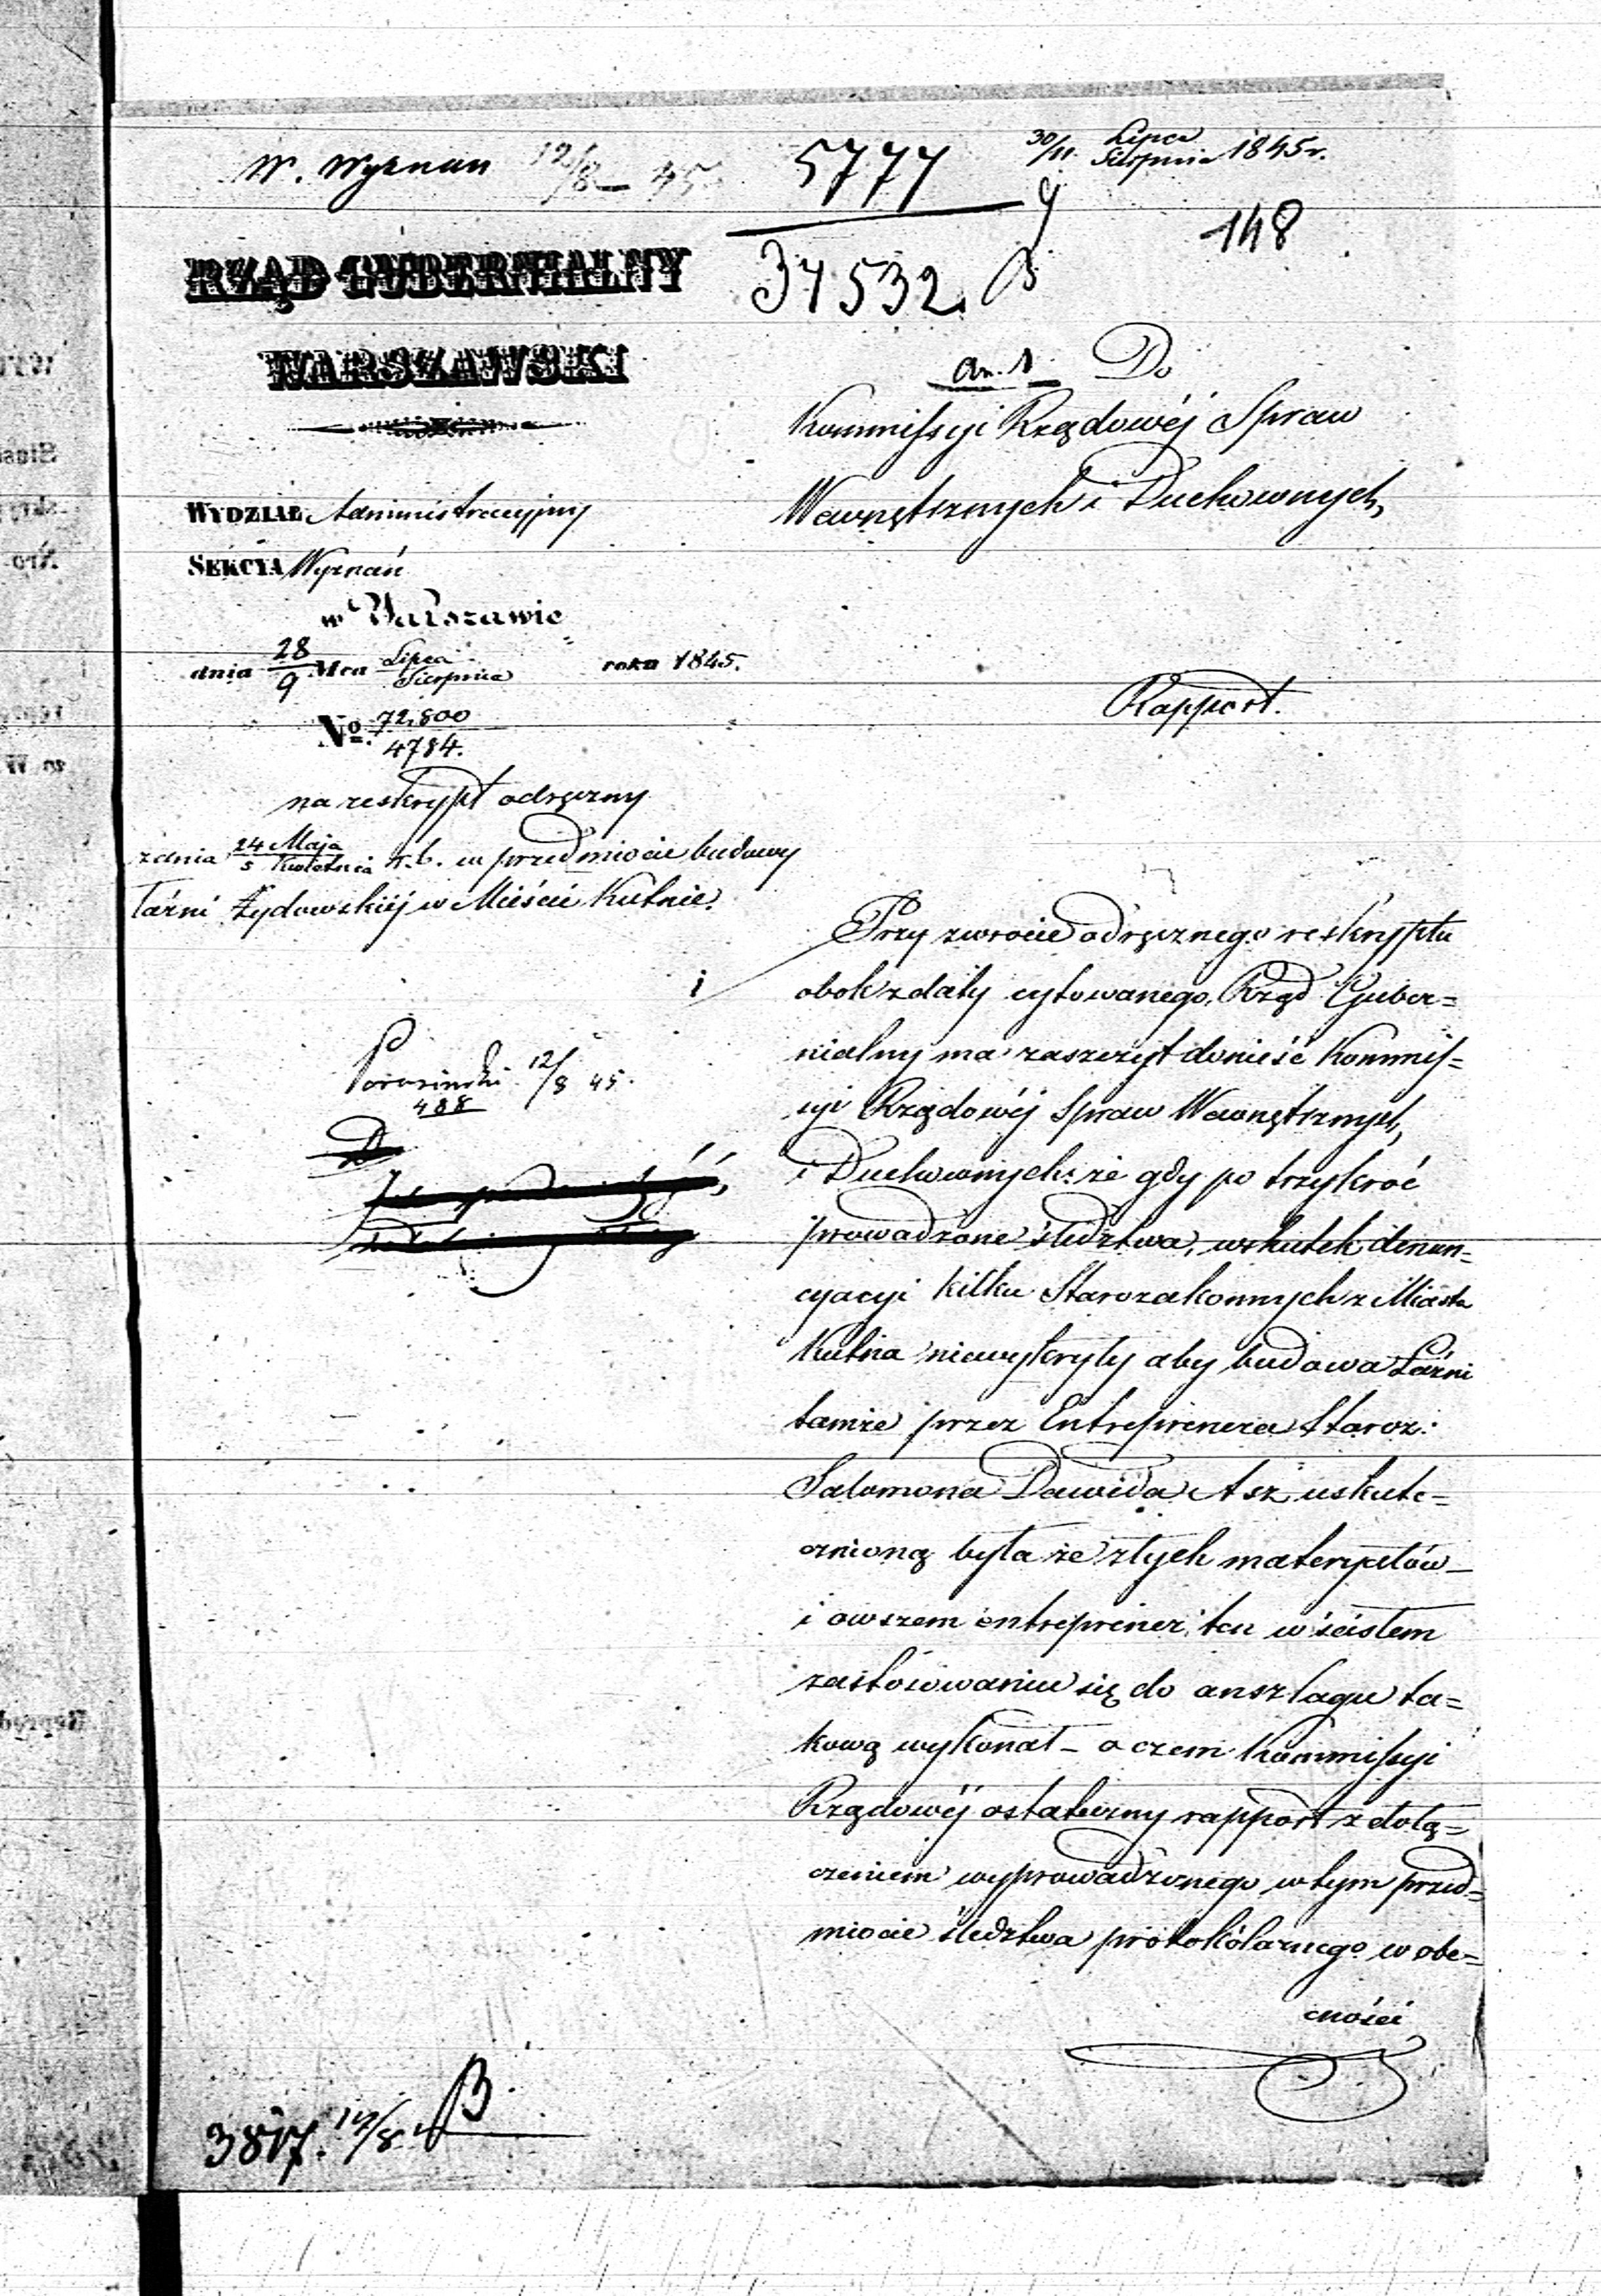 W. Wyznań 12/8 45
5777
30/11 Lipca Sierpnia 1845 r.
148
37532
RZĄD GUBERNIALNY
WARSZAWSKI
an. 1 Do
Kommissyi Rządowéj Spraw
Wewnętrznych i Duchownych,
WYDZIAŁ Administracyjny
SEKCYA Wyznań
w Warszawie
dnia 28/9 Mca Lipca/Sierpnia roku 1845.
No. 72,800/4784.
Rapport.
na reskrypt odręczny
z dnia 24 Maja/5 r. b. w przedmiocie budowy
Łaźni Żydowskiéj w Mieście Kutnie.
Przy zwrocie odręcznego reskryptu
obok z daty cytowanego, Rząd Guber=
nialny ma zaszczyt donieść Kommis=
syi Rządowéj Spraw Wewnętrznych,
i Duchownych: że gdy po trzykroć
prowadzone śledztwa, wskutek denun=
cyacyi kilku Starozakonnych z Miasta
Kutna niewykryły aby budowa Łaźni
tamże przez Entreprenera Staroz:
Salomona Dawida Asz uskute=
cznioną była ze złych materyałów _
i owszem entreprener ten w ścisłem
zastosowaniu się do anszlagu ta=
kową wykonał _ o czem Kommissyi
Rządowéj ostateczny rapport z dołą=
czeniem wyprowadzonego w tym przed=
miocie śledztwa protokólarnego w obe=
cności
12/8 45.
488
3817. 14/8 B